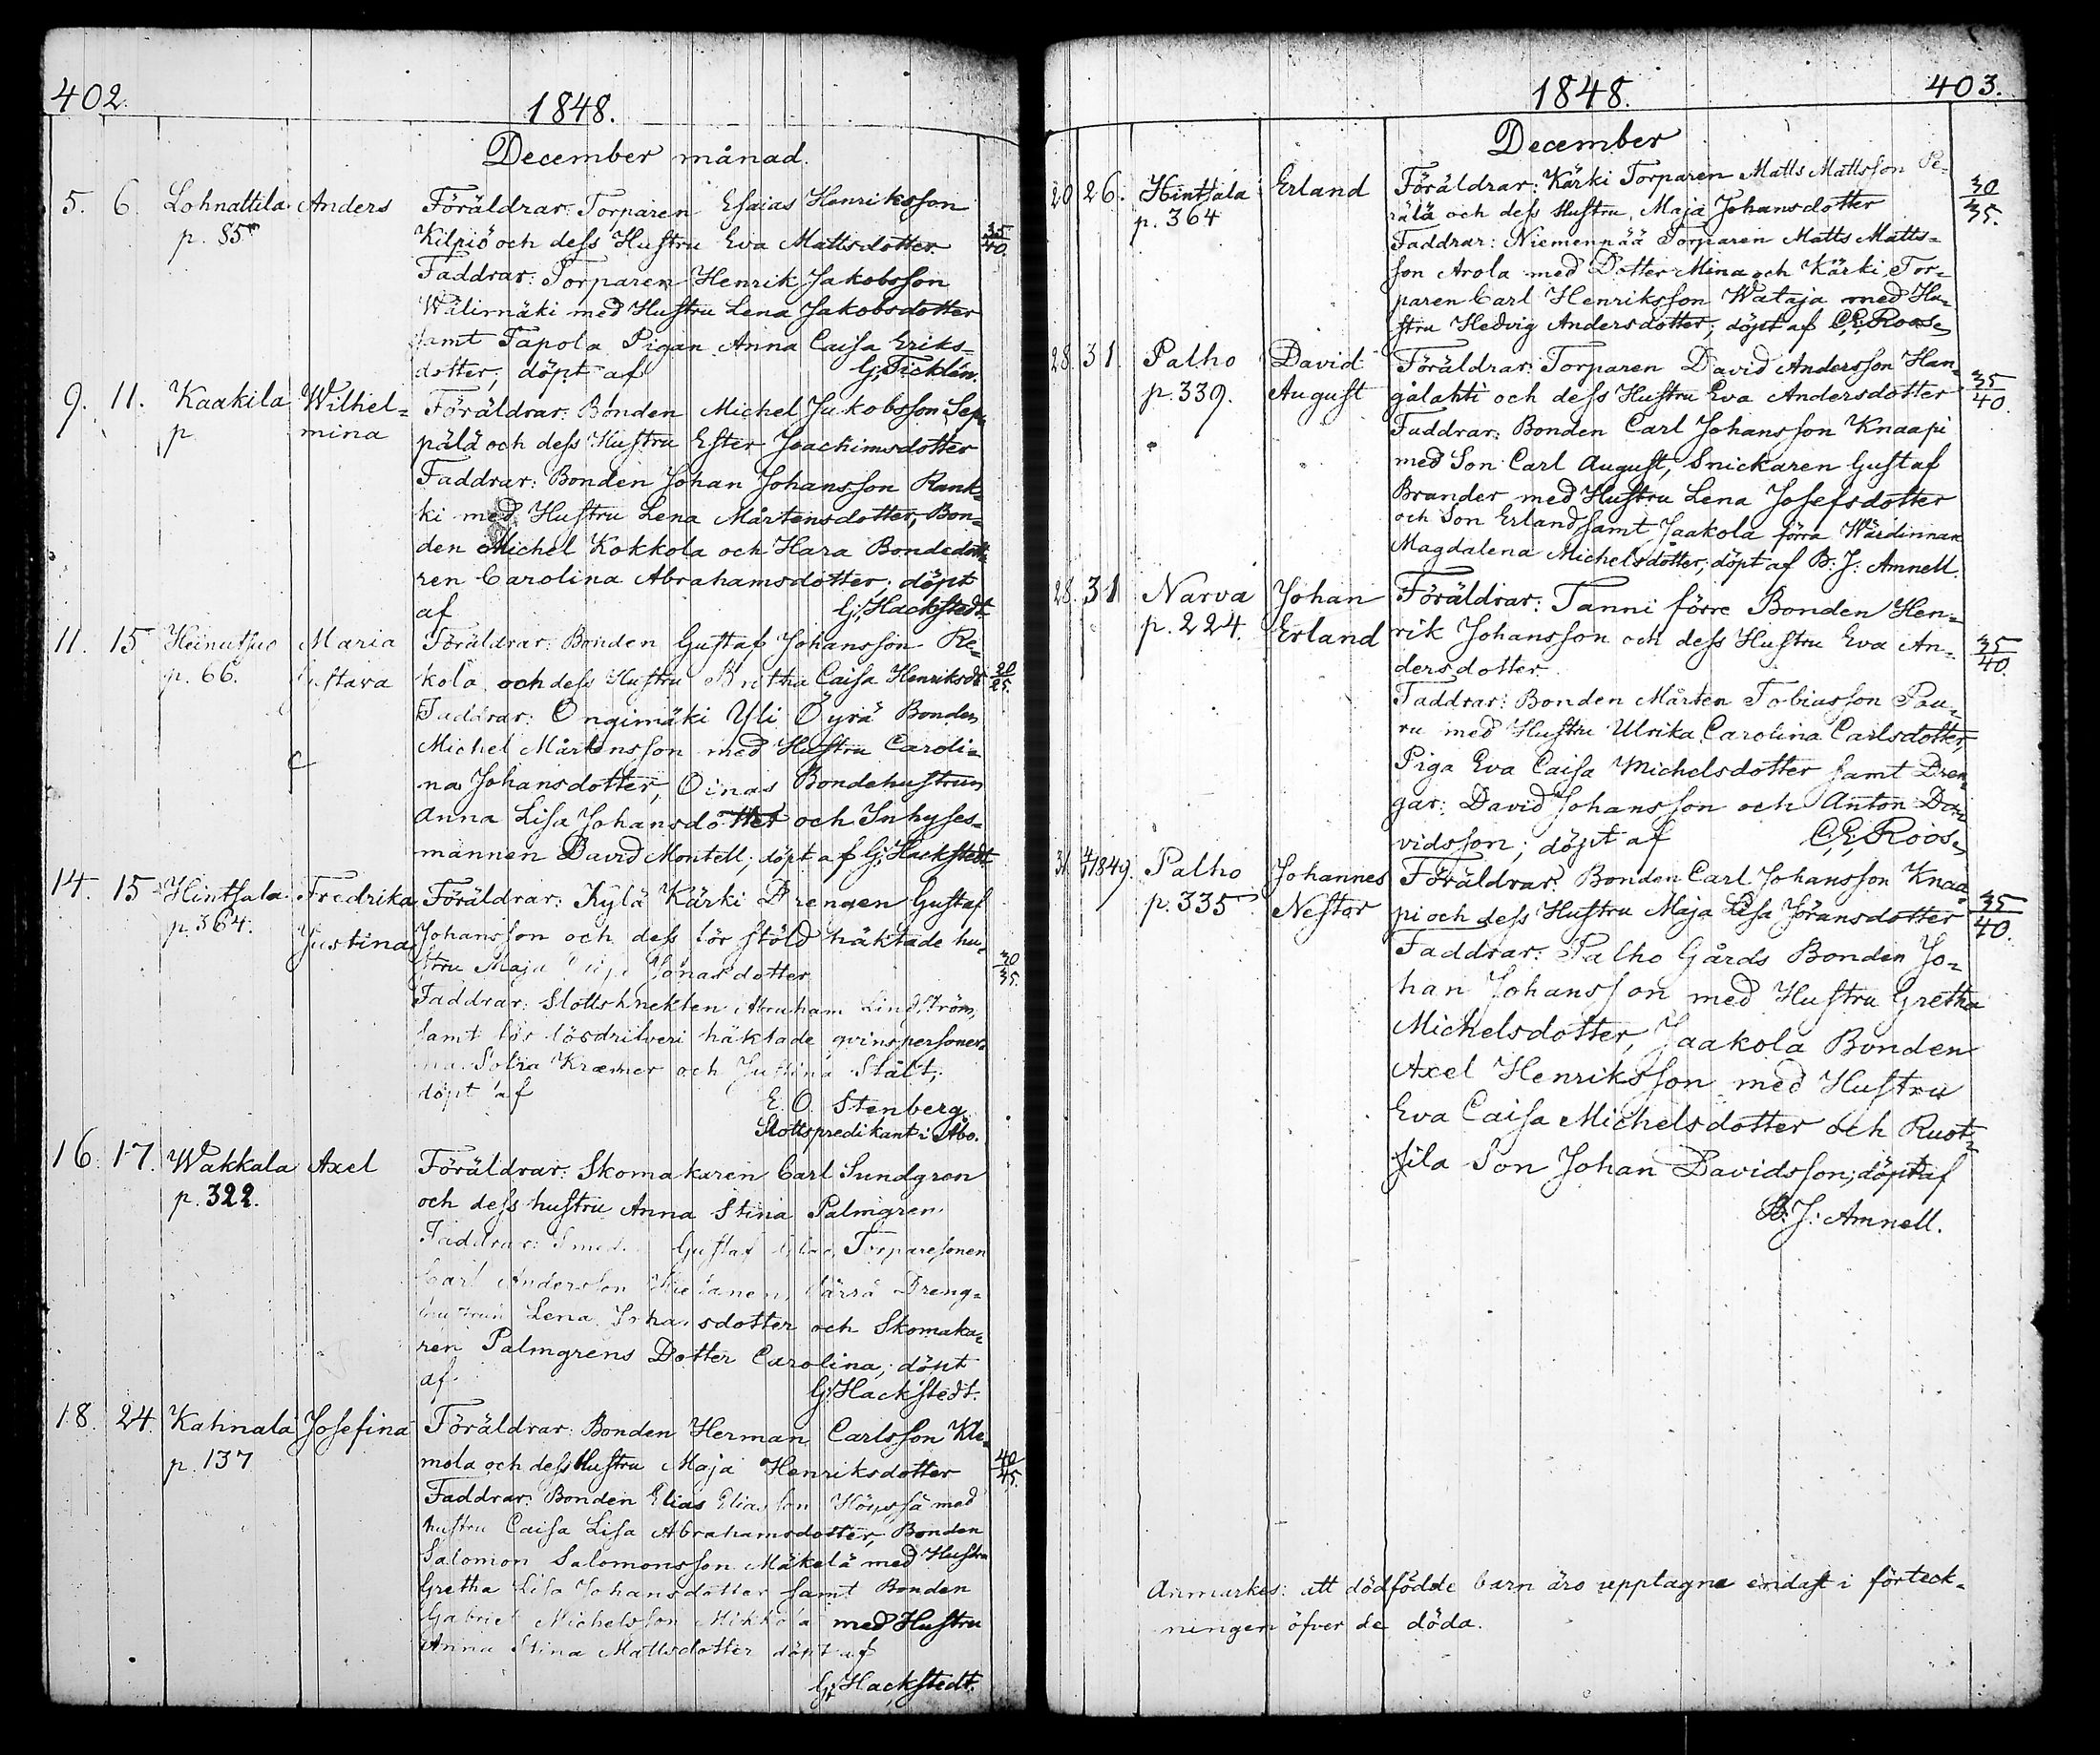 402.
1848.
December månad.
5. 6. Lohnattila Anders Föräldrar: Torparen Esaias Henriksson
p. 85 Kilpiö och dess Hustru Eva Mattsdotter. 35/40.
Faddrar: Torparen Henrik Jakobsson
Wälimäki med Hustru Lena Jakobsdotter
samt Tapola Pigan Anna Caisa Eriks-
dotter; döpt af G. Ticklén.
9. 11. Kaakila Wilhel- Föräldrar: Bonden Michel Jakobsson Sep-
p. mina pälä och dess Hustru Ester Joachimsdotter
Faddrar: Bonden Johan Johansson Rank-
ki med Hustru Lena Mårtensdotter, Bon-
den Michel Kokkola och Hara Bondedott-
ren Carolina Abrahamsdotter; döpt
af G. Hackstedt.
11. 15 Heinutsuo Maria Föräldrar: Bonden Gustaf Johansson Re-
p. 66. Gustava kola och dess Hustru Britha Caisa Henriksdr 20/25.
Faddrar: Ongimäki Yli Öyrä Bonden
Michel Mårtensson med Hustru Caroli-
na Johansdotter, Oinas Bondehustrun
Anna Lisa Johansdotter och Inhyses-
mannen David Montell; döpt af G. Hackstedt.
14. 15 Hintsala Fredrika Föräldrar: Kylä Kärki Drengen Gustaf
p. 364. Justina Johansson och dess för stöld häktade hu-
stru Maja Jonasdotter 30/35.
Faddrar: Slottsknekten Abraham Lindström,
samt för lösdrifveri häktade qvinspersoner-
na Sofia Kræmer och Justina Stålt;
döpt af E. O. Stenberg
Slottspredikant i Åbo.
16. 17. Wakkala Axel Föräldrar: Skomakaren Carl Sundgren
p. 322. och dess hustru Anna Stina Palmgren.
Faddrar: Smed Gustaf Torparesonen
Carl Andersson Dreng-
hustrun Lena Johansdotter och Skomaka-
ren Palmgrens Dotter Carolina; döpt
af. G. Hackstedt.
18. 24. Kahnala Josefina Föräldrar: Bonden Herman Carlsson Kle-
p. 137 mola och dess Hustru Maja Henriksdotter 40/45.
Faddrar: Bonden Elias Eliasson Höyssä med
hustru Caisa Lisa Abrahamsdotter, Bonden
Salomon Salomonsson Mäkelä med Hustru
Gretha Lisa Johansdotter samt Bonden
Gabriel Michelsson Mikkola med Hustru
Anna Stina Mattsdotter döpt af
G. Hackstedt.
1848. 403.
December
20 26. Hintsala Erland Föräldrar: Kärki Torparen Matts Mattsson Pe-
p. 364 rälä och dess Hustru, Maja Johansdotter 30/35.
Faddrar: Niemenpää Torparen Matts Matts-
son Arola med Dotter Mina och Kärki Tor-
paren Carl Henriksson Wataja med Hu-
stru Hedvig Andersdotter; döpt af C. E. Roos.
28. 31. Palho David Föräldrar: Torparen David Andersson Han-
p. 339. August gålahti och dess Hustru Eva Andersdotter 35/40.
Faddrar: Bonden Carl Johansson Knaapi
med Son Carl August, Snickaren Gustaf
Brander med Hustru Lena Josefsdotter
och Son Erland samt Jaakola förra Wärdinnan
Magdalena Michelsdotter, döpt af B: J: Amnell.
28. 31 Narva Johan Föräldrar: Tanni förre Bonden Hen-
p. 224. Erland rik Johansson och dess Hustru Eva An-
dersdotter. 35/40.
Faddrar: Bonden Mårten Tobiasson Pau-
ru med Hustru Ulrika Carolina Carlsdotter
Piga Eva Caisa Michelsdotter samt Dren-
gar: David Johansson och Anton Da-
vidsson; döpt af C. E. Roos.
31. 4/1 1849. Palho Johannes Föräldrar: Bonden Carl Johansson Knaa-
p. 335 Nestor pi och dess Hustru Maja Lisa Jöransdotter 35/40.
Faddrar: Palho Gårds Bonden Jo-
han Johansson med Hustru Gretha
Michelsdotter, Jaakola Bonden
Axel Henriksson med Hustru
Eva Caisa Michelsdotter och Ruot-
sila Son Johan Davidsson; döpt af
B: J: Amnell.
Anmärkes: att dödfödde barn äro upptagne endast i förteck-
ningen öfver de döda.